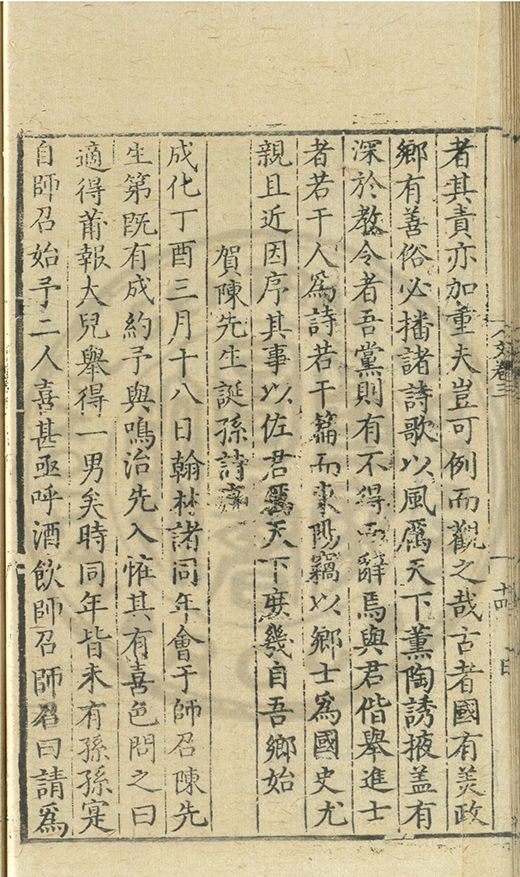 者其責亦加重夫豈可例而觀之哉古者國有美政
鄉有善俗必播諸詩歌以風厲天下薰陶誘掖盖有
深於教令者吾黨則有不得而辭焉與君偕舉進士
者若干人為詩若干篇而東陽竊以鄉士為國史尤
親且近因序其事以佐君厲天下庶幾自吾鄉始
賀陳先生誕孫詩序
成化丁酉三月十八日翰林諸同年會于師召陳先
生第既有成約予與鳴治先入惟其有喜色問之曰
適得莆報大兒舉得一男矣時同年皆未有孫孫寔
自師召始予二人喜甚亟呼酒飲師召師召曰請為
文卷三
十四